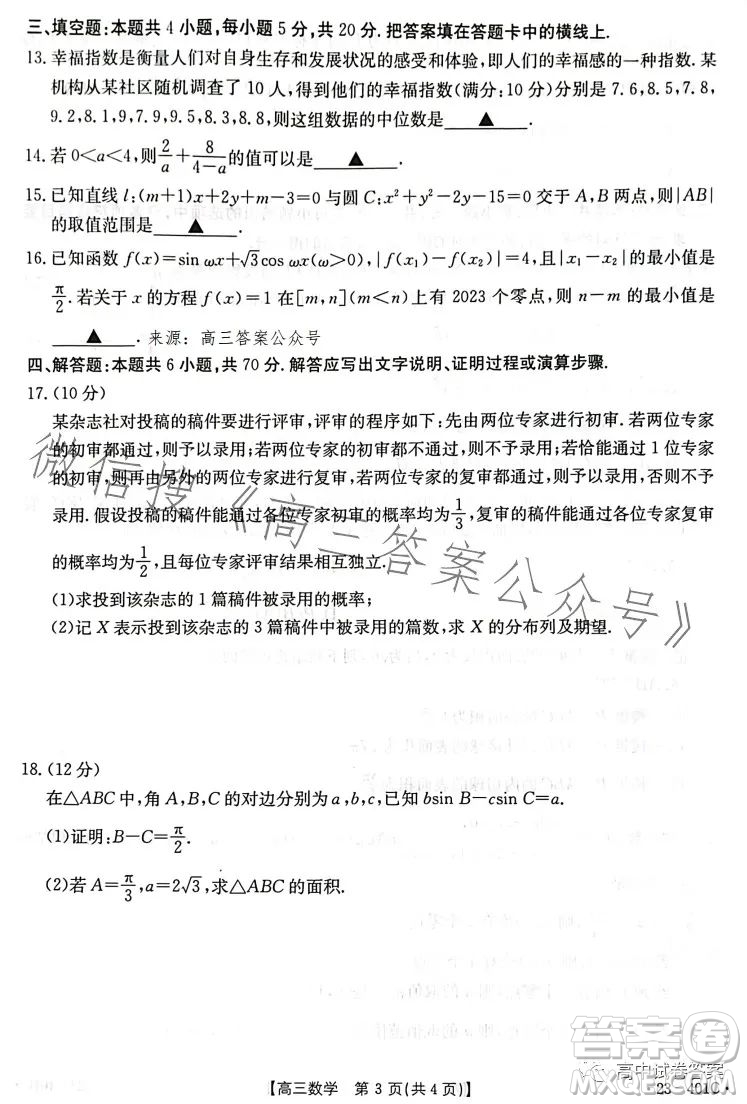 三、填空题:本题共4小题,每小题5分,共20分.把答案填在答题卡中的横线上.
13.幸福指数是衡量人们对自身生存和发展状况的感受和体验,即人们的幸福感的一种指数.某
机构从某社区随机调查了10人,得到他们的幸福指数(满分:10分)分别是7.6,8.5,7.8,
9.2,8.1,9,7.9,9.5,8.3,8.8,则这组数据的中位数是 ▲ .
14.若0<a<4,则2/a+8/(4-a)的值可以是 ▲ .
15.已知直线l:(m+1)x+2y+m-3=0与圆C:x²+y²-2y-15=0交于A,B两点,则|AB|
的取值范围是 ▲ .
16.已知函数f(x)=sin ωx+√3cos ωx(ω>0),|f(x₁)-f(x₂)|=4,且|x₁-x₂|的最小值是
π/2.若关于x的方程f(x)=1在[m,n](m<n)上有2023个零点,则n-m的最小值是
▲ .来源:高三答案公众号
四、解答题:本题共6小题,共70分.解答应写出文字说明、证明过程或演算步骤.
17.(10分)
某杂志社对投稿的稿件要进行评审,评审的程序如下:先由两位专家进行初审.若两位专家
的初审都通过,则予以录用;若两位专家的初审都不通过,则不予录用;若恰能通过1位专家
的初审,则再由另外的两位专家进行复审,若两位专家的复审都通过,则予以录用,否则不予
录用.假设投稿的稿件能通过各位专家初审的概率均为1/3,复审的稿件能通过各位专家复审
的概率均为1/2,且每位专家评审结果相互独立.
(1)求投到该杂志的1篇稿件被录用的概率;
(2)记X表示投到该杂志的3篇稿件中被录用的篇数,求X的分布列及期望.
微信搜《高三答案公众号》
18.(12分)
在△ABC中,角A,B,C的对边分别为a,b,c,已知bsin B-csin C=a.
(1)证明:B-C=π/2.
(2)若A=π/3,a=2√3,求△ABC的面积.
答案卷
高中试卷答案
【高三数学 第3页(共4页)】
·23-401C·